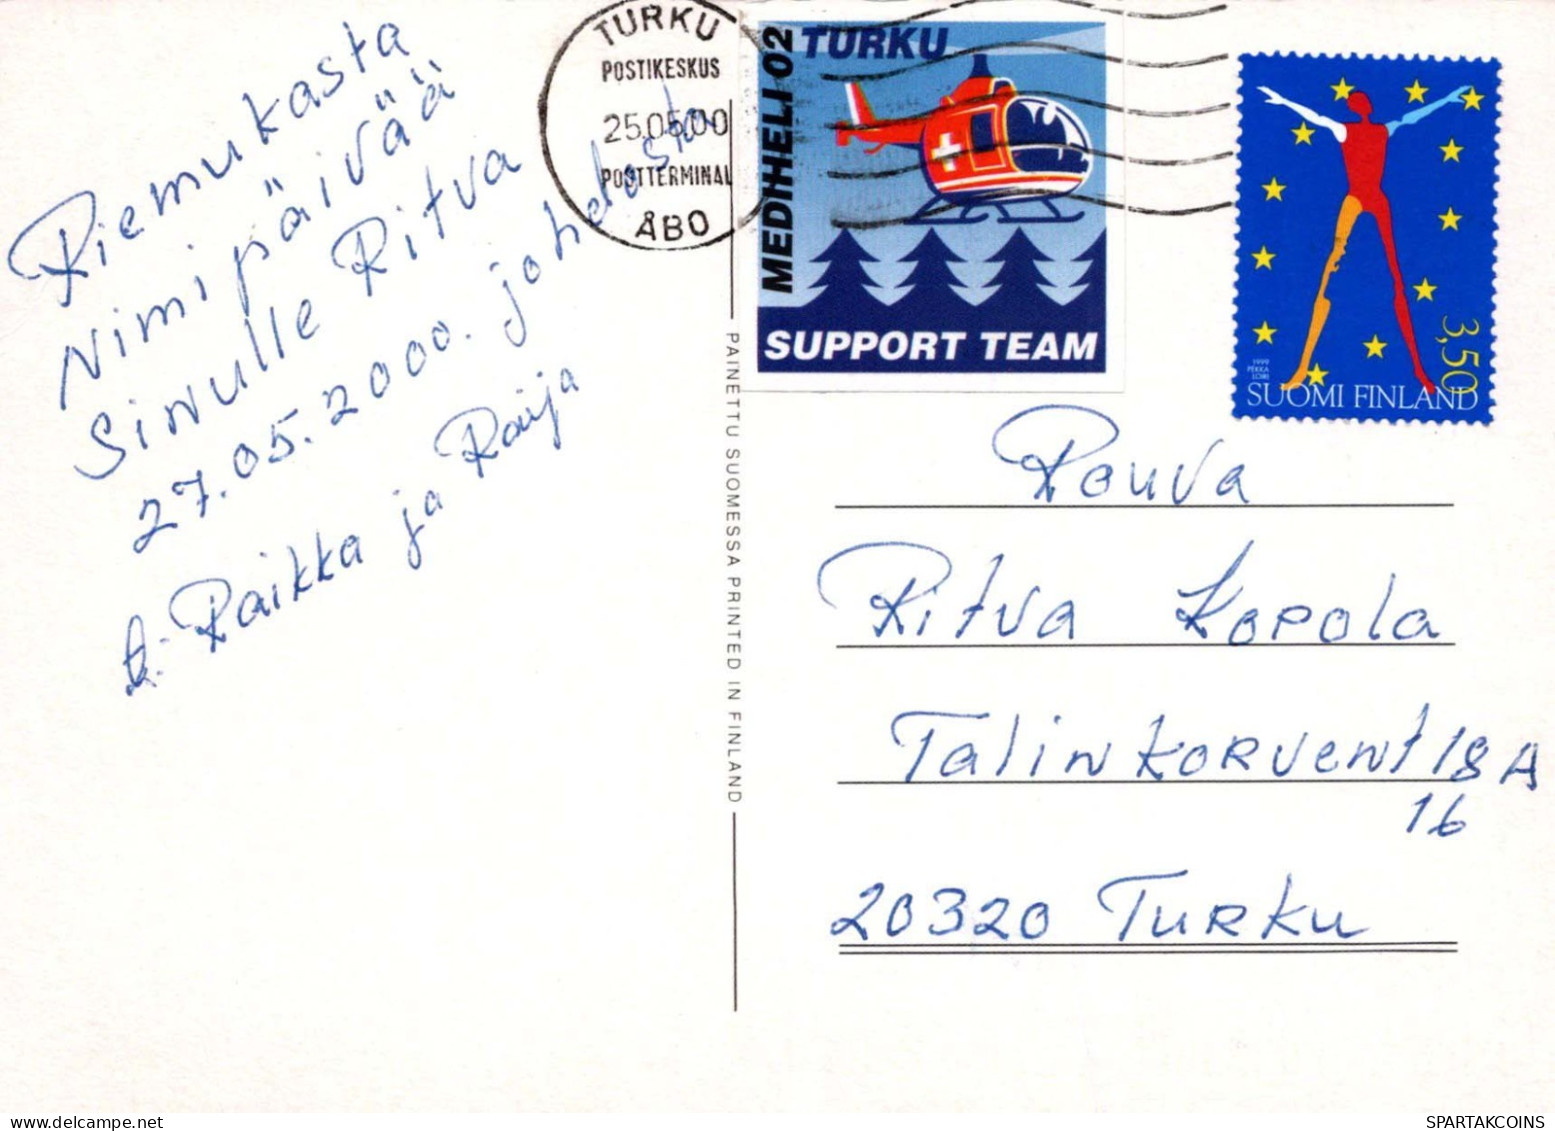 Riemukasta
Nimipäivää
Sinulle Ritva
27.05.2000. johdosta
t: Raikka ja Raija
TURKU
POSTIKESKUS
25.05.00
POSTTERMINAL
ÅBO
MEDIHELI 02
TURKU
SUPPORT TEAM
1999
PEKKA
LOIRI
3,50
SUOMI FINLAND
PAINETTU SUOMESSA PRINTED IN FINLAND
Rouva
Ritva Kopola
Talinkorvent 18 A
16
20320 Turku
SPARTAKCOINS